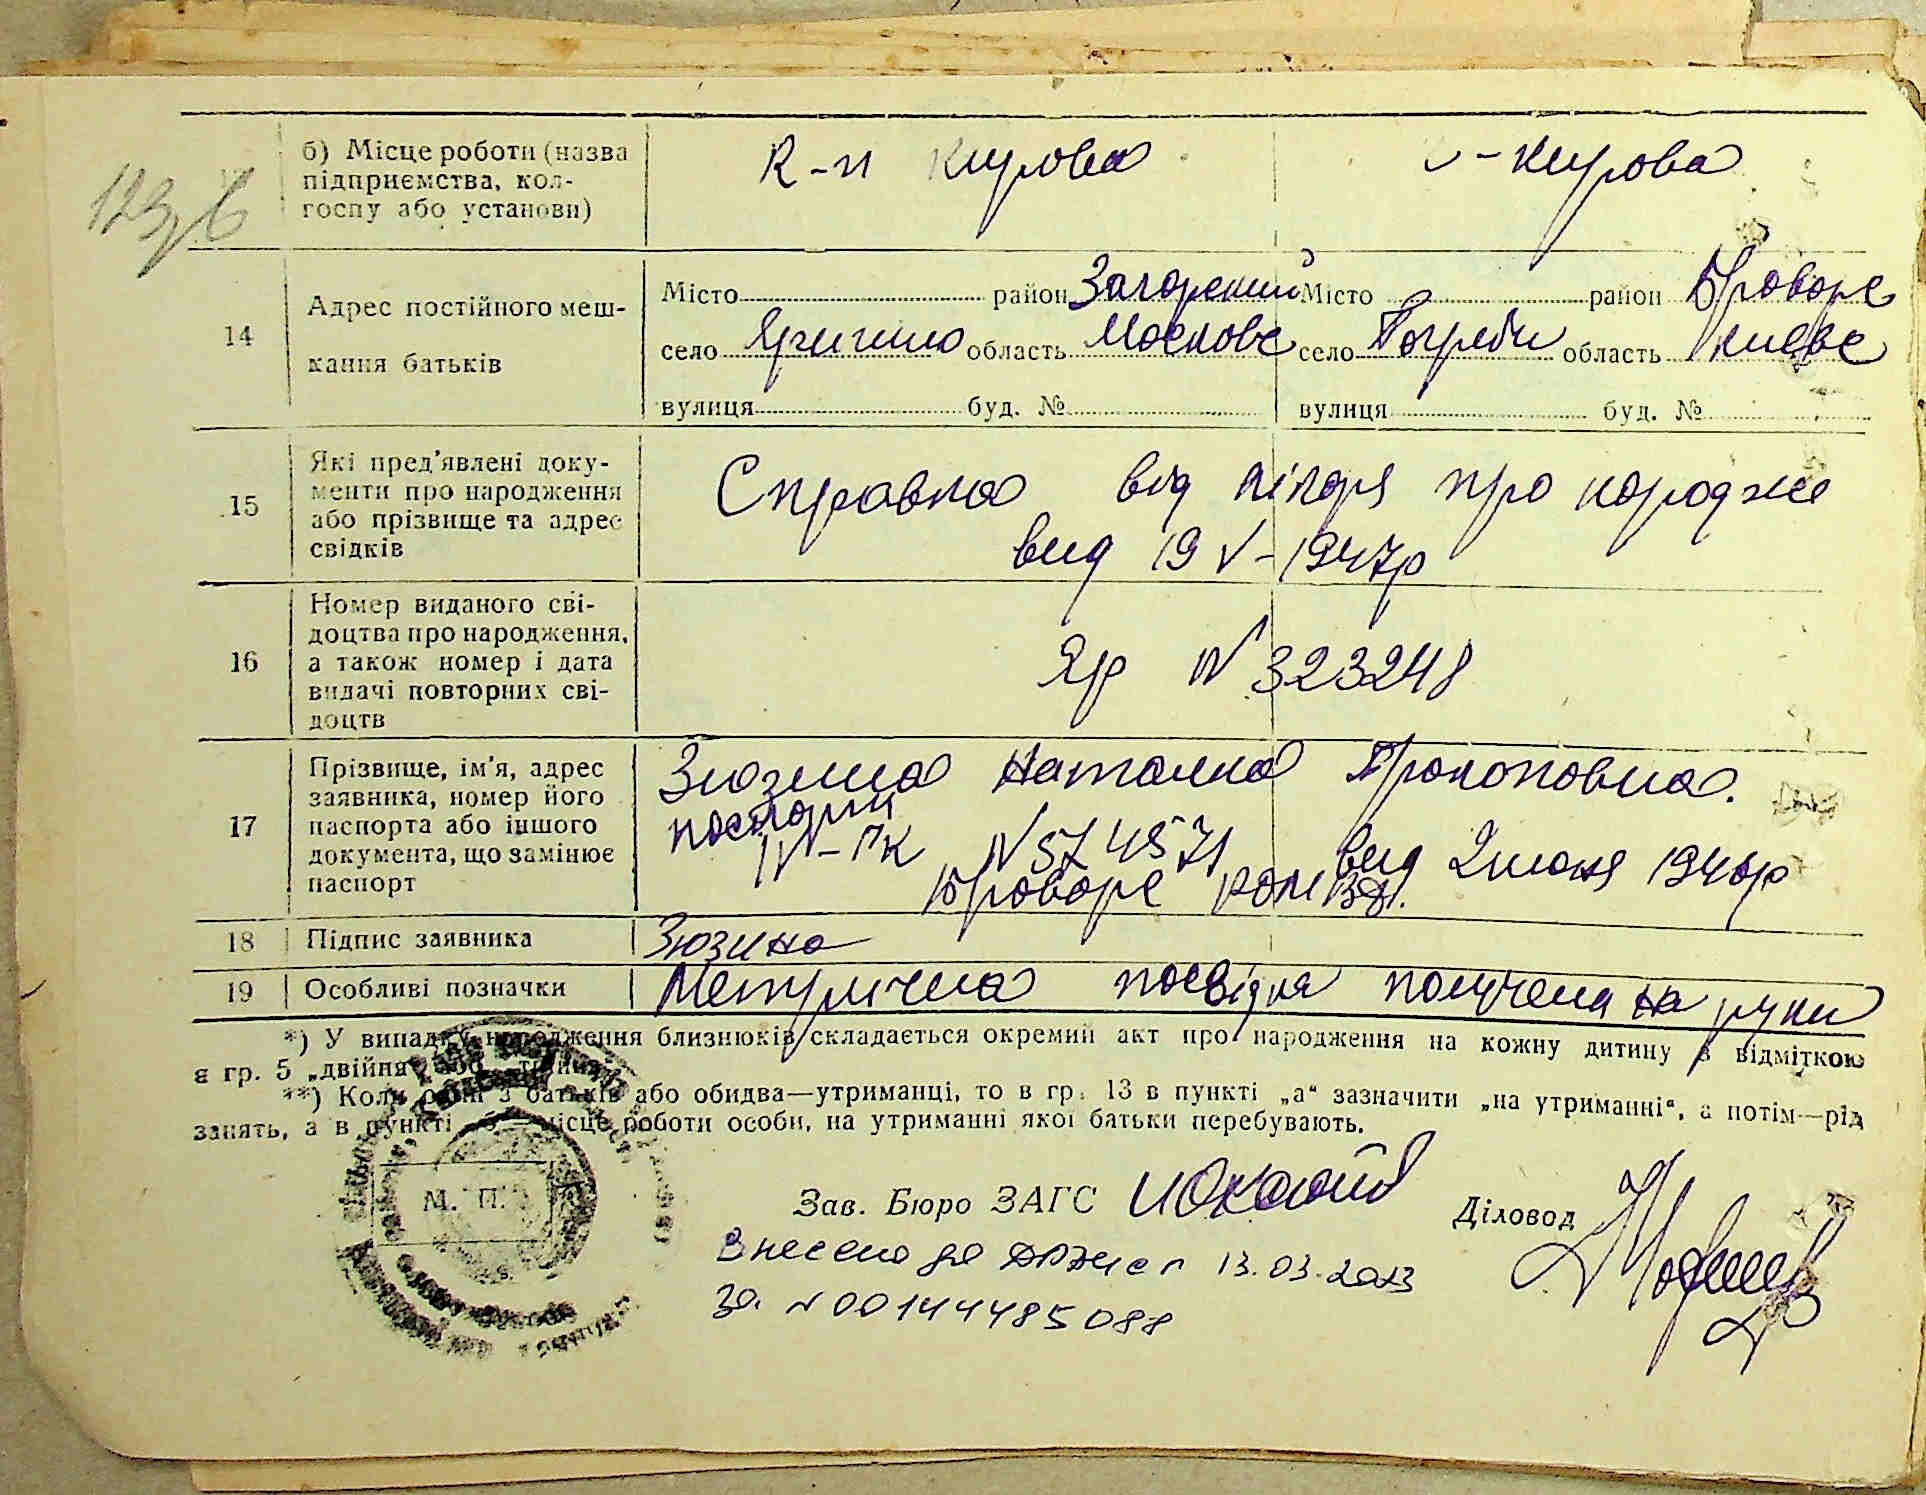 123 б) Місце роботи (назва
підприємства, кол-
госпу або установи)
К-п Кирова
-Кирова
14 Адрес постійного меш-
кання батьків
Місто район Загорский
село область Московс
вулиця буд. №
Місто район Броварс
село Погреби область Киевс
вулиця буд. №
15 Які пред'явлені доку-
менти про народження
або прізвище та адрес
свідків
Справка від лікаря про народже
вид 19 V-1947р
16 Номер виданого сві-
доцтва про народження,
а також номер і дата
видачі повторних сві-
доцтв
ЯР N 323248
17 Прізвище, ім'я, адрес
заявника, номер його
паспорта або іншого
документа, що замінює
паспорт
Зюзина Наталка Прокоповна.
паспорт
IV-ПК N 574571 вид 2 июня 1946р
Броварс
18 Підпис заявника Зюзина
19 Особливі позначки Метрична посвідка получена на руки
*) У випадку народження близнюків складається окремий акт про народження на кожну дитину з відміткою
в гр. 5 „двійня" або „трійня".
**) Коли один з батьків або обидва—утриманці, то в гр. 13 в пункті „а" зазначити „на утриманні", а потім—рід
занять, а в пункті „б"—місце роботи особи, на утриманні якої батьки перебувають.
М. П.
Зав. Бюро ЗАГС
Діловод
Внесено до ДРАЦСГ 13.03.2023
за N 00144485088